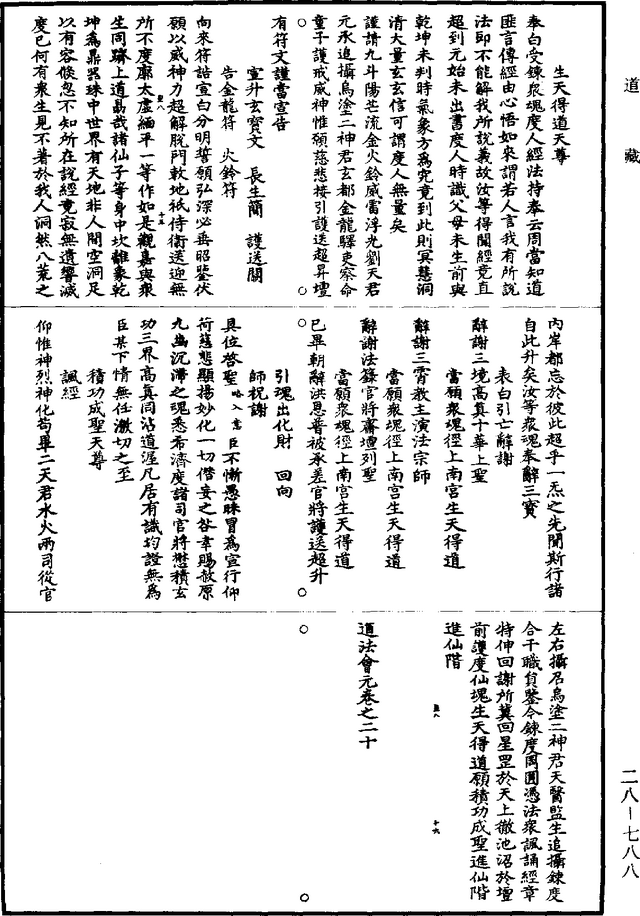 道藏
生天得道天尊
奉白受鍊衆魂度人經法持奉云周當知道
匪言傳經由心悟如來謂若人言我有所說
法即不能解我所說義故汝等得聞經竟直
超到元始未出書度人時識父母未生前與
乾坤未判時氣象方爲究竟到此則冥慧洞
清大量玄玄信可謂度人無量矣
謹請九斗陽芒流金火鈴威雷浮光劉天君
元承追攝烏塗二神君玄都金龍驛吏察命
童子護戒威神惟願慈悲接引護送超昇壇
有符文謹當宣告
宣升玄寳文 長生簡 護送關
告金龍符 火鈴符
向來符誥宣白分明誓願弘深必垂昭鑒伏
願以威神力超解脫門敕地祇侍衛送迎無
所不度廓太虛緬平一等作如是觀嘉與衆
生同躋上道勗哉諸仙子等身中坎離象乾
坤爲鼎器珠中世界有天地非人間空洞足
以有容倏忽不知所在說經竟寂無遺響滅
度已何有衆生見不著於我人洞然八荒之
内岸都忘於彼此超乎一炁之先聞斯行諸
自此升矣汝等衆魂奉辭三寳
表白引亡辭謝
辭謝三境高真十華上聖
當願衆魂徑上南宫生天得道
辭謝三霄教主演法宗師
當願衆魂徑上南宫生天得道
辭謝法籙官將齋壇列聖
當願衆魂徑上南宫生天得道
已畢朝辭洪恩普被承差官將護送超升
引魂出化財 回向
師祝謝
具位啓聖略入意臣不慚愚昧冒爲宣行仰
荷慈悲顯揚妙化一切僣妄之咎幸賜赦原
九幽沉滯之魂悉希濟度諸司官將懋積玄
功三界高真同沾道渥凡居有識均證無爲
臣某下情無任激切之至
積功成聖天尊
諷經
仰惟神烈神化苟畢二天君水火兩司從官
左右攝召烏塗二神君天醫監生追攝鍊度
合干職員鑒今鍊度周圓憑法衆諷誦經章
特伸回謝所冀回星罡於天上徹池沼於壇
前護度仙魂生天得道願積功成聖進仙階
進仙階
道法會元卷之二十
二八-七八八